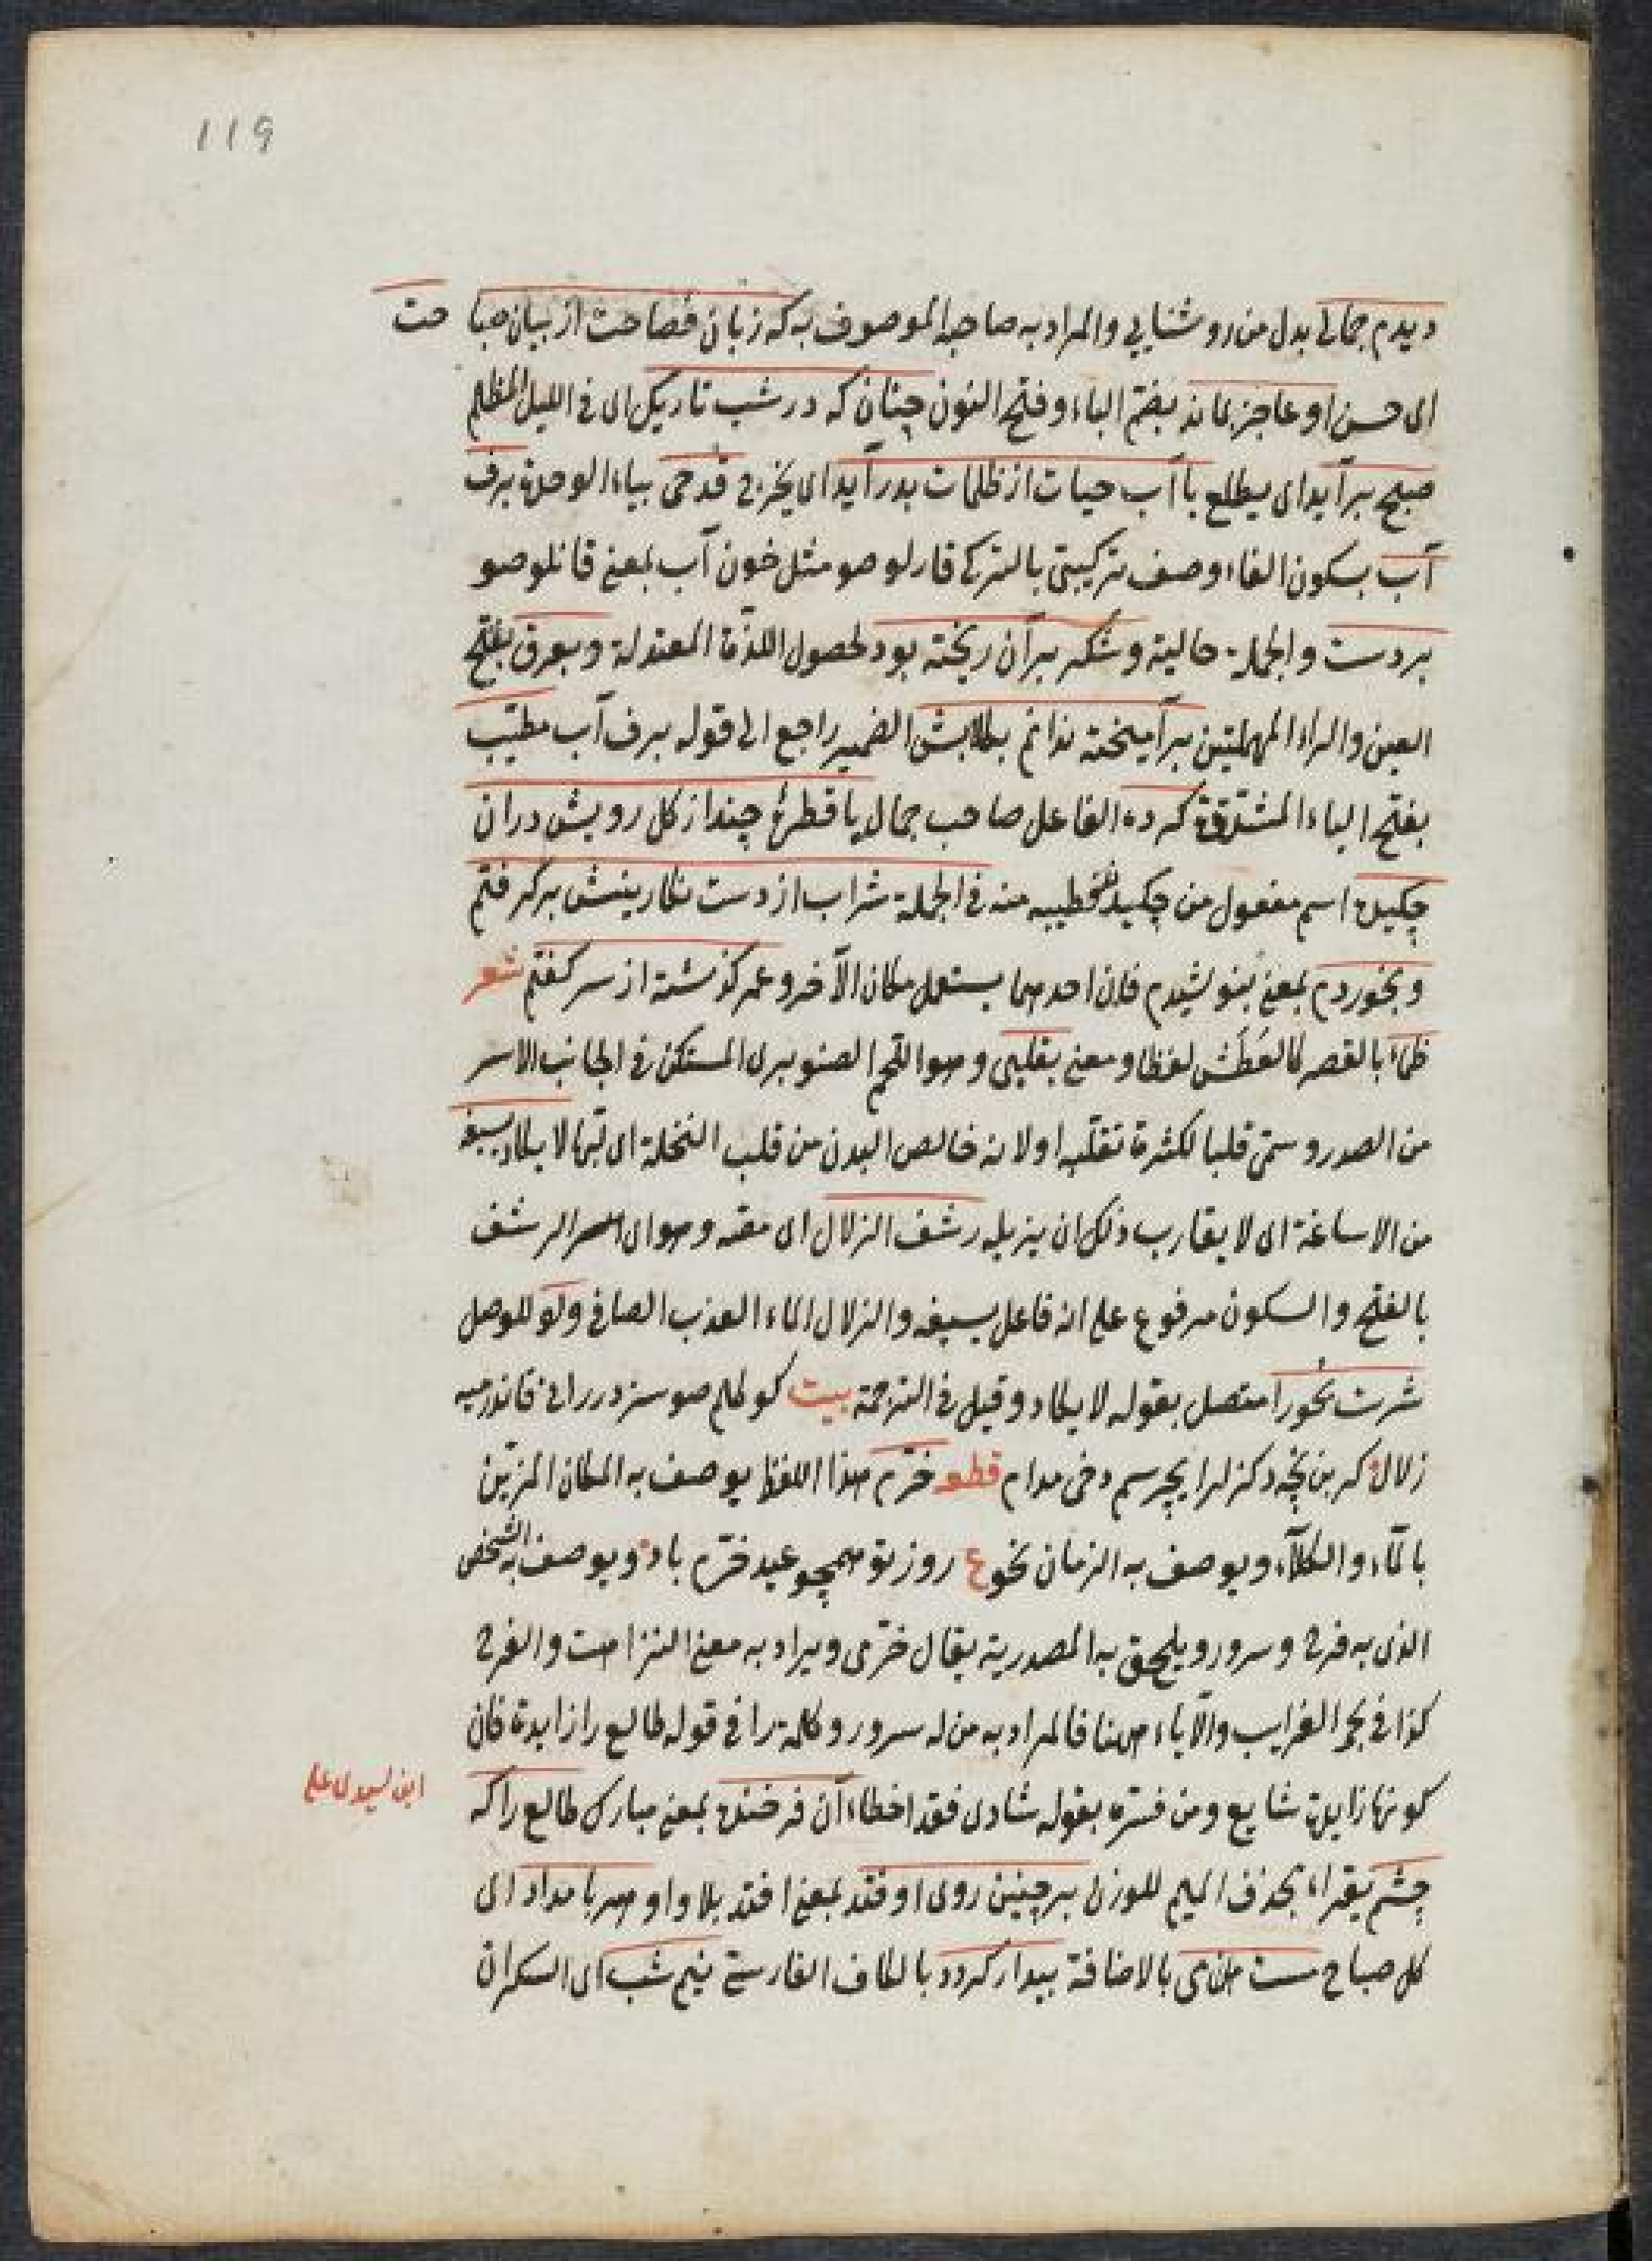 119
ديدم جمالى بدل من روشنايى والمراد به صاحبه الموصوف به كه زبان فصاحت از بيان صباحت
اى حسن او عاجز بماند بضم الباء وفتح النون چنان كه در شب تاريك اى فى الليل المظلم
صبح برآيد اى يطلع يا آب حيات از ظلمات بدر آيد اى يخرج قدحى بياء الوحدة برف
آب بسكون الفاء وصف تركيبى بالتركى قارلو صو مثل خون آب بمعنى قانلو صو
بر دست والجملة حالية وشكر بر آن ريخته بود لحصول اللذة المعتدلة وبعرق بفتح
العين والراء المهملتين برآميخته ندانم بكلابش الضمير راجع الى قوله برف آب مطيّب
بفتح الياء المشددة كرده الفاعل صاحب جمال يا قطرۀ چند از كل رويش دران
چكيده اسم مفعول من چكيدن فى الجملة شراب از دست نكارينش بركرفتم
وبخوردم بمعنى بنوشيدم فان احدهما يستعمل مكان الآخر وعمر كذشته از سر كفتم شعر
ظماء بالقصر كالعَطَش لفظا ومعنى بقلبى وهو اللحم الصنوبرى المستكن فى الجانب الايسر
من الصدر وسمّى قلبا لكثرة تقلّبه او لانه خالص البدن من قلب النخلة اى لبّها لا يكاد يسيغه
من الاساغة اى لا يقارب ذلك ان يزيله رشف الزلال اى مصّه وهو اى الرشف
بالفتح والسكون مرفوع على انه فاعل يسيغه والزلال الماء العذب الصافى ولو للوصل
شربت بحورا متصل بقوله لا يكاد وقيل فى الترجمة بيت كوكلم صوسزدر
زلال كر بن قطعه خرّم هذا اللفظ يوصف به المكان المزيّن
بالماء والكلآء ويوصف به الزمان نحو ع روز تو همچو عيد خرّم باد ويوصف به الشخص
الذى به فرح وسرور ويلحق به المصدرية يقال خرّمى ويراد به معنى النزاهت والفرح
كذا فى بحر الغرايب والآباء ههنا فالمراد به من له سرور وكلمة را فى قوله طالع را زايدة فان
كونها زايدة شايع ومن فسّره بقوله شادى فقد اخطاء آن فرخنده بمعنى مبارك طالع را كه
ابن سيدى على
چشم يقراء بحذف الميم للوزن بر چنين روى اوفتد بمعنى افتد بلا واو هر بامداد اى
كل صباح مست مى بالاضافة بيدار كردد بالكاف الفارسى نيم شب اى السكران